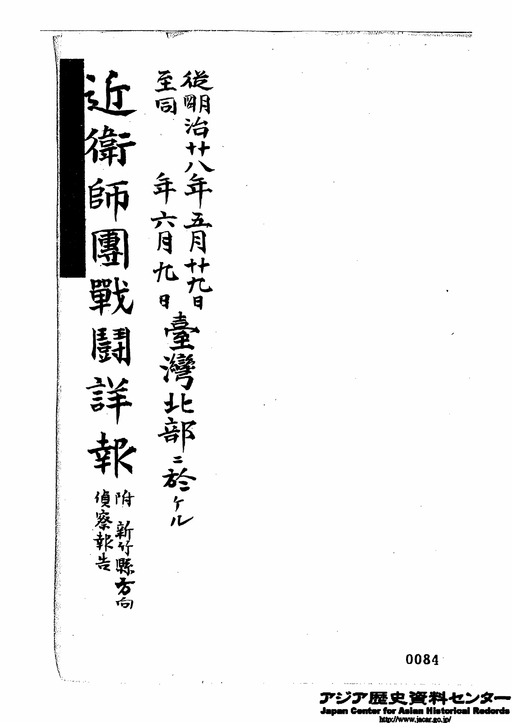 従明治廿八年五月廿九日
至同　　年六月九日
臺灣北部ニ於ケル
近衛師團戰鬪詳報
附 新竹縣方向
偵察報告
0084
アジア歴史資料センター
Japan Center for Asian Historical Records
http://www.jacar.go.jp/